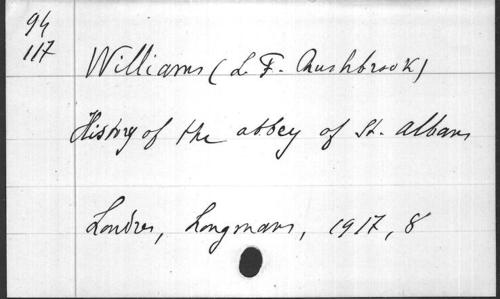 94
117
Williams (L. F. Rushbrook)
History of the abbey of St. Albans
Londres, Longmans, 1917, 8